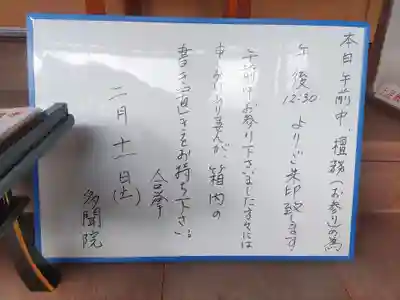 本日午前中、檀務(お参り)の為
午後12:30よりご朱印致します。
午前中お参り下さいました方々には
申し訳ありませんが、箱内の
書き置きをお持ち下さい。
合掌
二月十一日(土)
多聞院